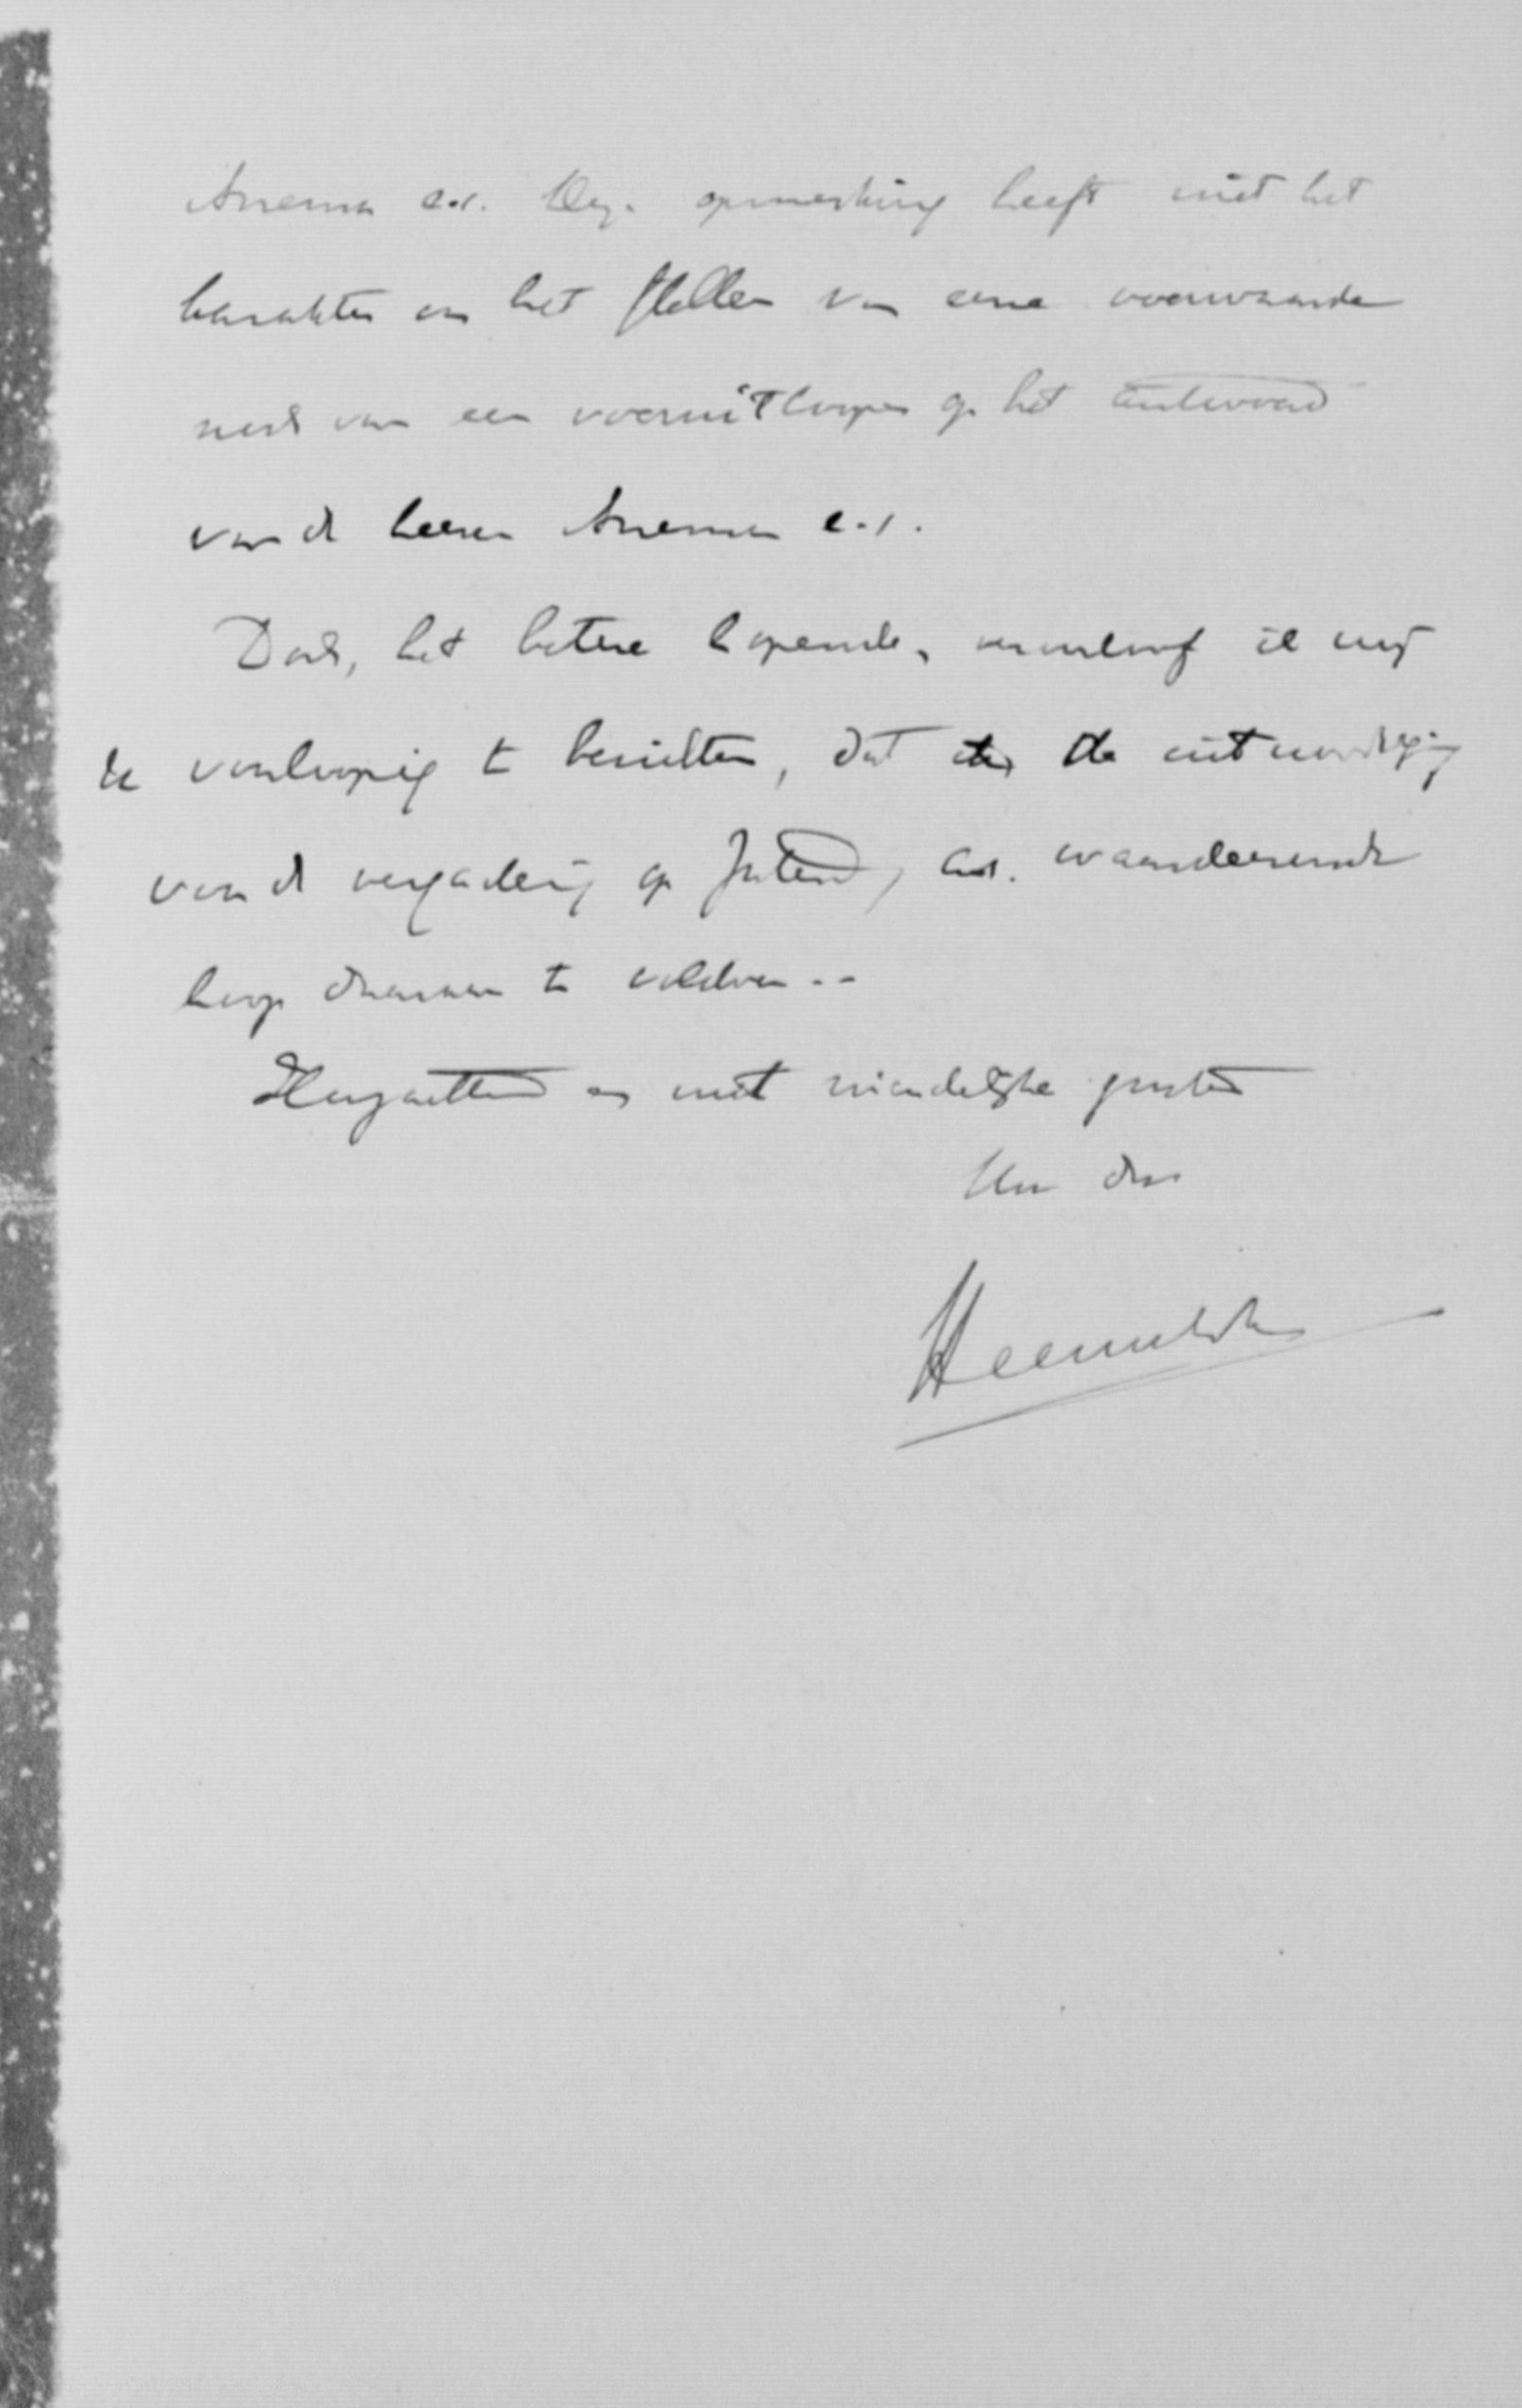 Anema c.s. Deze opmerking heeft niet het
karakter van het stellen van eene voorwaarde
noch van een vooruitloopen op het antwoord
van de heeren Anema c.s.
Doch, het betere hopende, veroorloof ik mij
U voorloopig te berichten, dat de uitnoodiging
van de vergadering op Zaterdag a.s. waardeerende
hoop daaraan te voldoen.
Hoogachtend en met vriendelijke groeten
Uw dw
Heemskerk